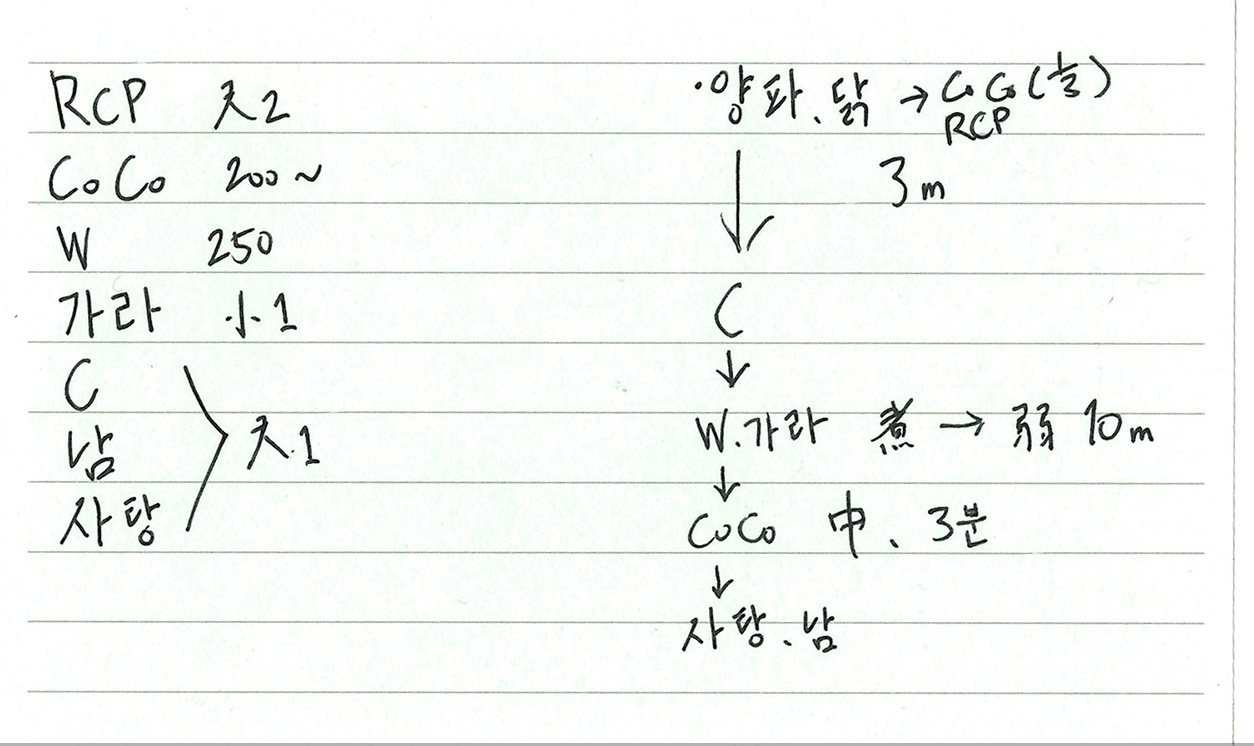 RCP 大2
CoCo 200~
W 250
가라 小1
C
남
사탕
大1
·양파、닭 → CoCo(1/3)
RCP
3m
↓
C
↓
W.가라 煮 → 弱 10m
↓
CoCo 中、3분
↓
사탕、남